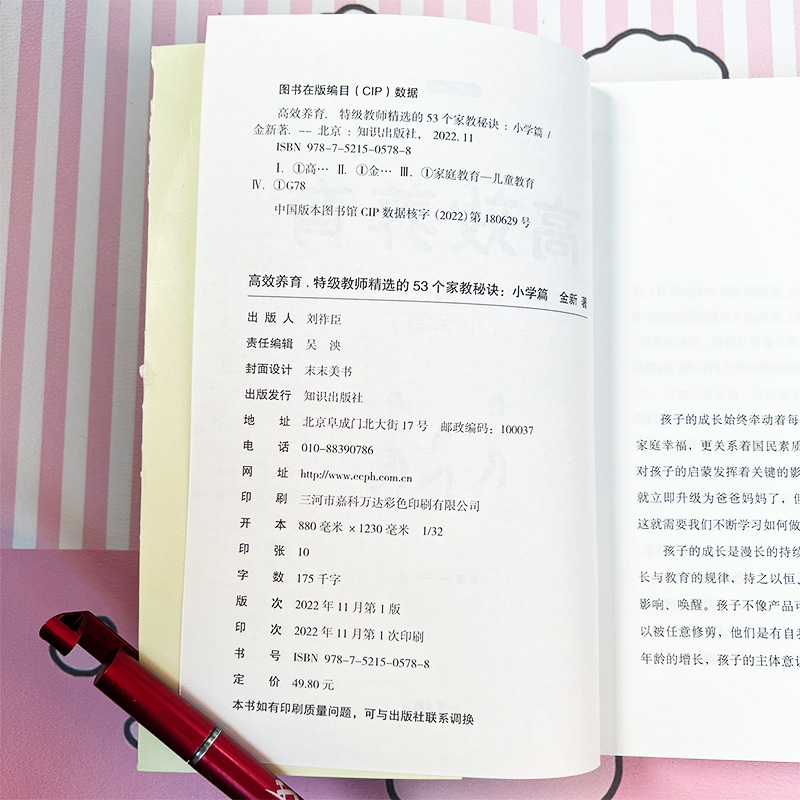 图书在版编目（CIP）数据
高效养育．特级教师精选的 53 个家教秘诀：小学篇 /
金新著. -- 北京：知识出版社，2022.11
ISBN 978-7-5215-0578-8
Ⅰ. ①高… Ⅱ. ①金… Ⅲ. ①家庭教育—儿童教育
Ⅳ. ①G78
中国版本图书馆 CIP 数据核字（2022）第 180629 号
高效养育．特级教师精选的 53 个家教秘诀：小学篇 金新 著
出版人 刘祚臣
责任编辑 吴 泱
封面设计 末末美书
出版发行 知识出版社
地 址 北京阜成门北大街 17 号 邮政编码：100037
电 话 010-88390786
网 址 http://www.ecph.com.cn
印 刷 三河市嘉科万达彩色印刷有限公司
开 本 880 毫米 ×1230 毫米 1/32
印 张 10
字 数 175 千字
版 次 2022 年 11 月第 1 版
印 次 2022 年 11 月第 1 次印刷
书 号 ISBN 978-7-5215-0578-8
定 价 49.80 元
本书如有印刷质量问题，可与出版社联系调换
孩子的成长始终牵动着每
家庭幸福，更关系着国民素质
对孩子的启蒙发挥着关键的影
就立即升级为爸爸妈妈了，但
这就需要我们不断学习如何做
孩子的成长是漫长的持续
长与教育的规律，持之以恒、
影响、唤醒。孩子不像产品可
以被任意修剪，他们是有自我
年龄的增长，孩子的主体意识